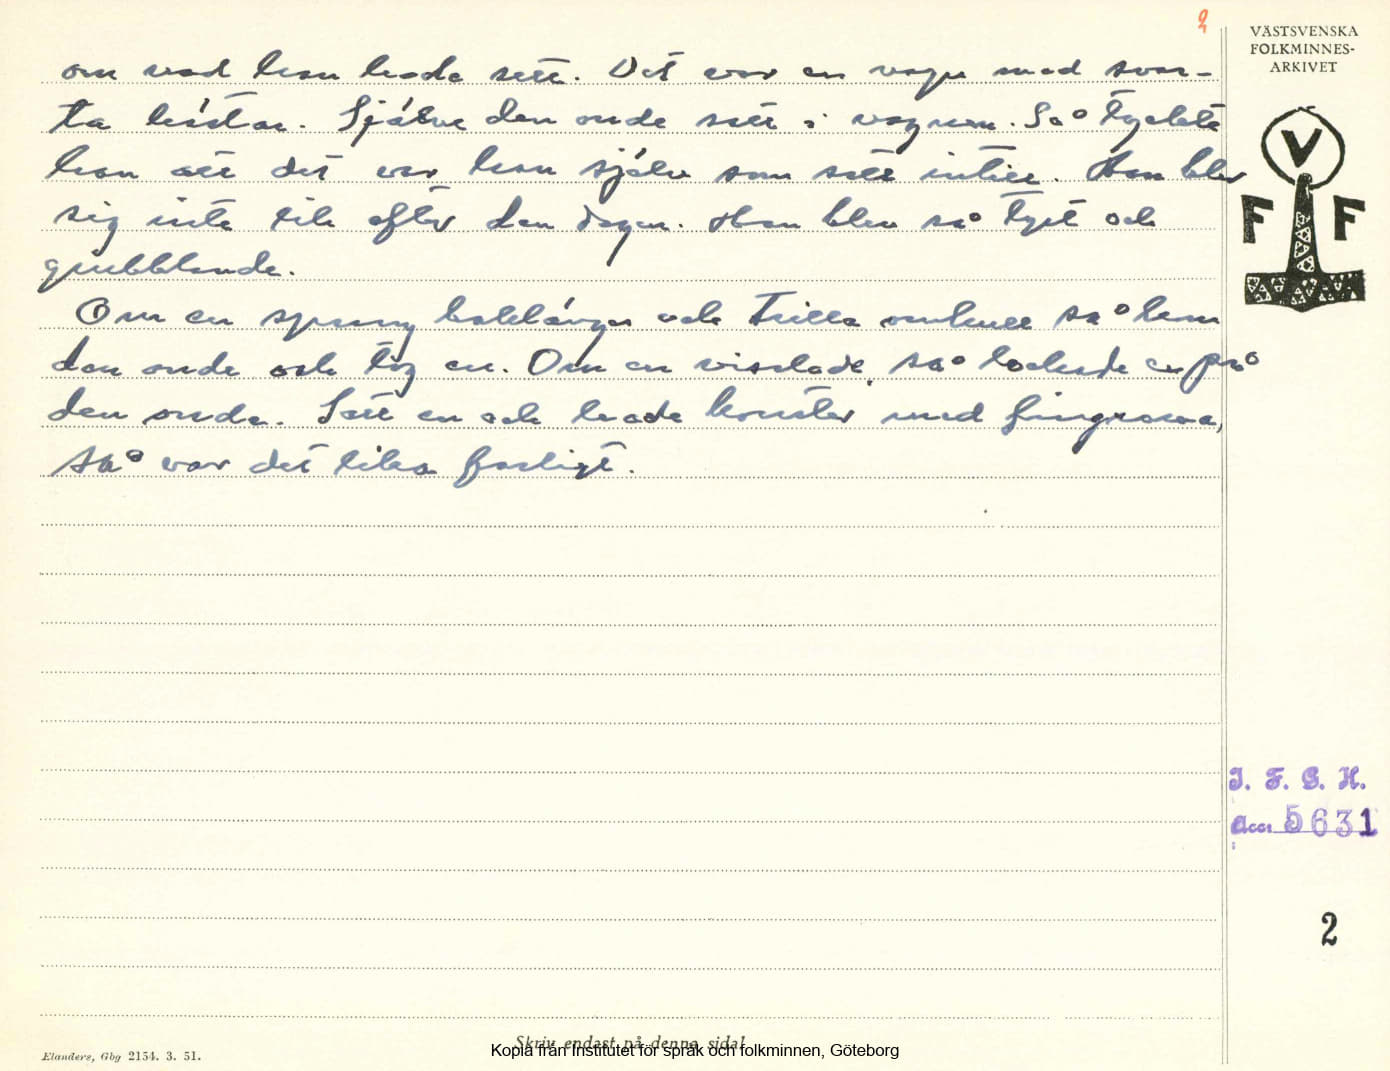 2
VÄSTSVENSKA
FOLKMINNES-
ARKIVET
V
F F
om vad han hade sett. Det var en vagn med svar-
ta hästar. Själve den onde satt i vagnen. Så tyckte
han att det var han själv som satt intill. Han blev
sig inte lik efter den dagen. Han blev så tyst och
grubblande.
Om en sprang baklänges och trilla omkull så kom
den onde och tog en. Om en visslade, så lockade en på
den onda. Satt en och hade konster med fingrarna,
så var det lika farligt.
I. F. G. H.
Acc. 5631
2
Elanders, Gbg 2154. 3. 51.
Skriv endast på denna sida!
Kopia från Institutet för språk och folkminnen, Göteborg